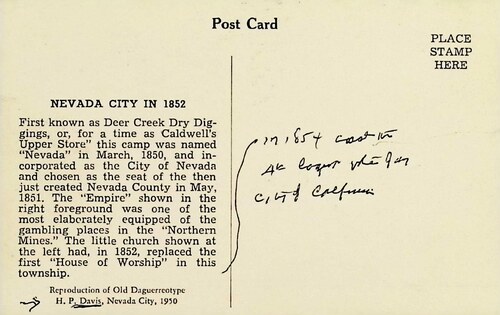 Post Card
PLACE
STAMP
HERE
NEVADA CITY IN 1852
First known as Deer Creek Dry Dig-
gings, or, for a time as Caldwell's
Upper Store" this camp was named
"Nevada" in March, 1850, and in-
corporated as the City of Nevada
and chosen as the seat of the then
just created Nevada County in May,
1851. The "Empire" shown in the
right foreground was one of the
most elaborately equipped of the
gambling places in the "Northern
Mines." The little church shown at
the left had, in 1852, replaced the
first "House of Worship" in this
township.
Reproduction of Old Daguerreotype
H. P. Davis, Nevada City, 1950
in 1854